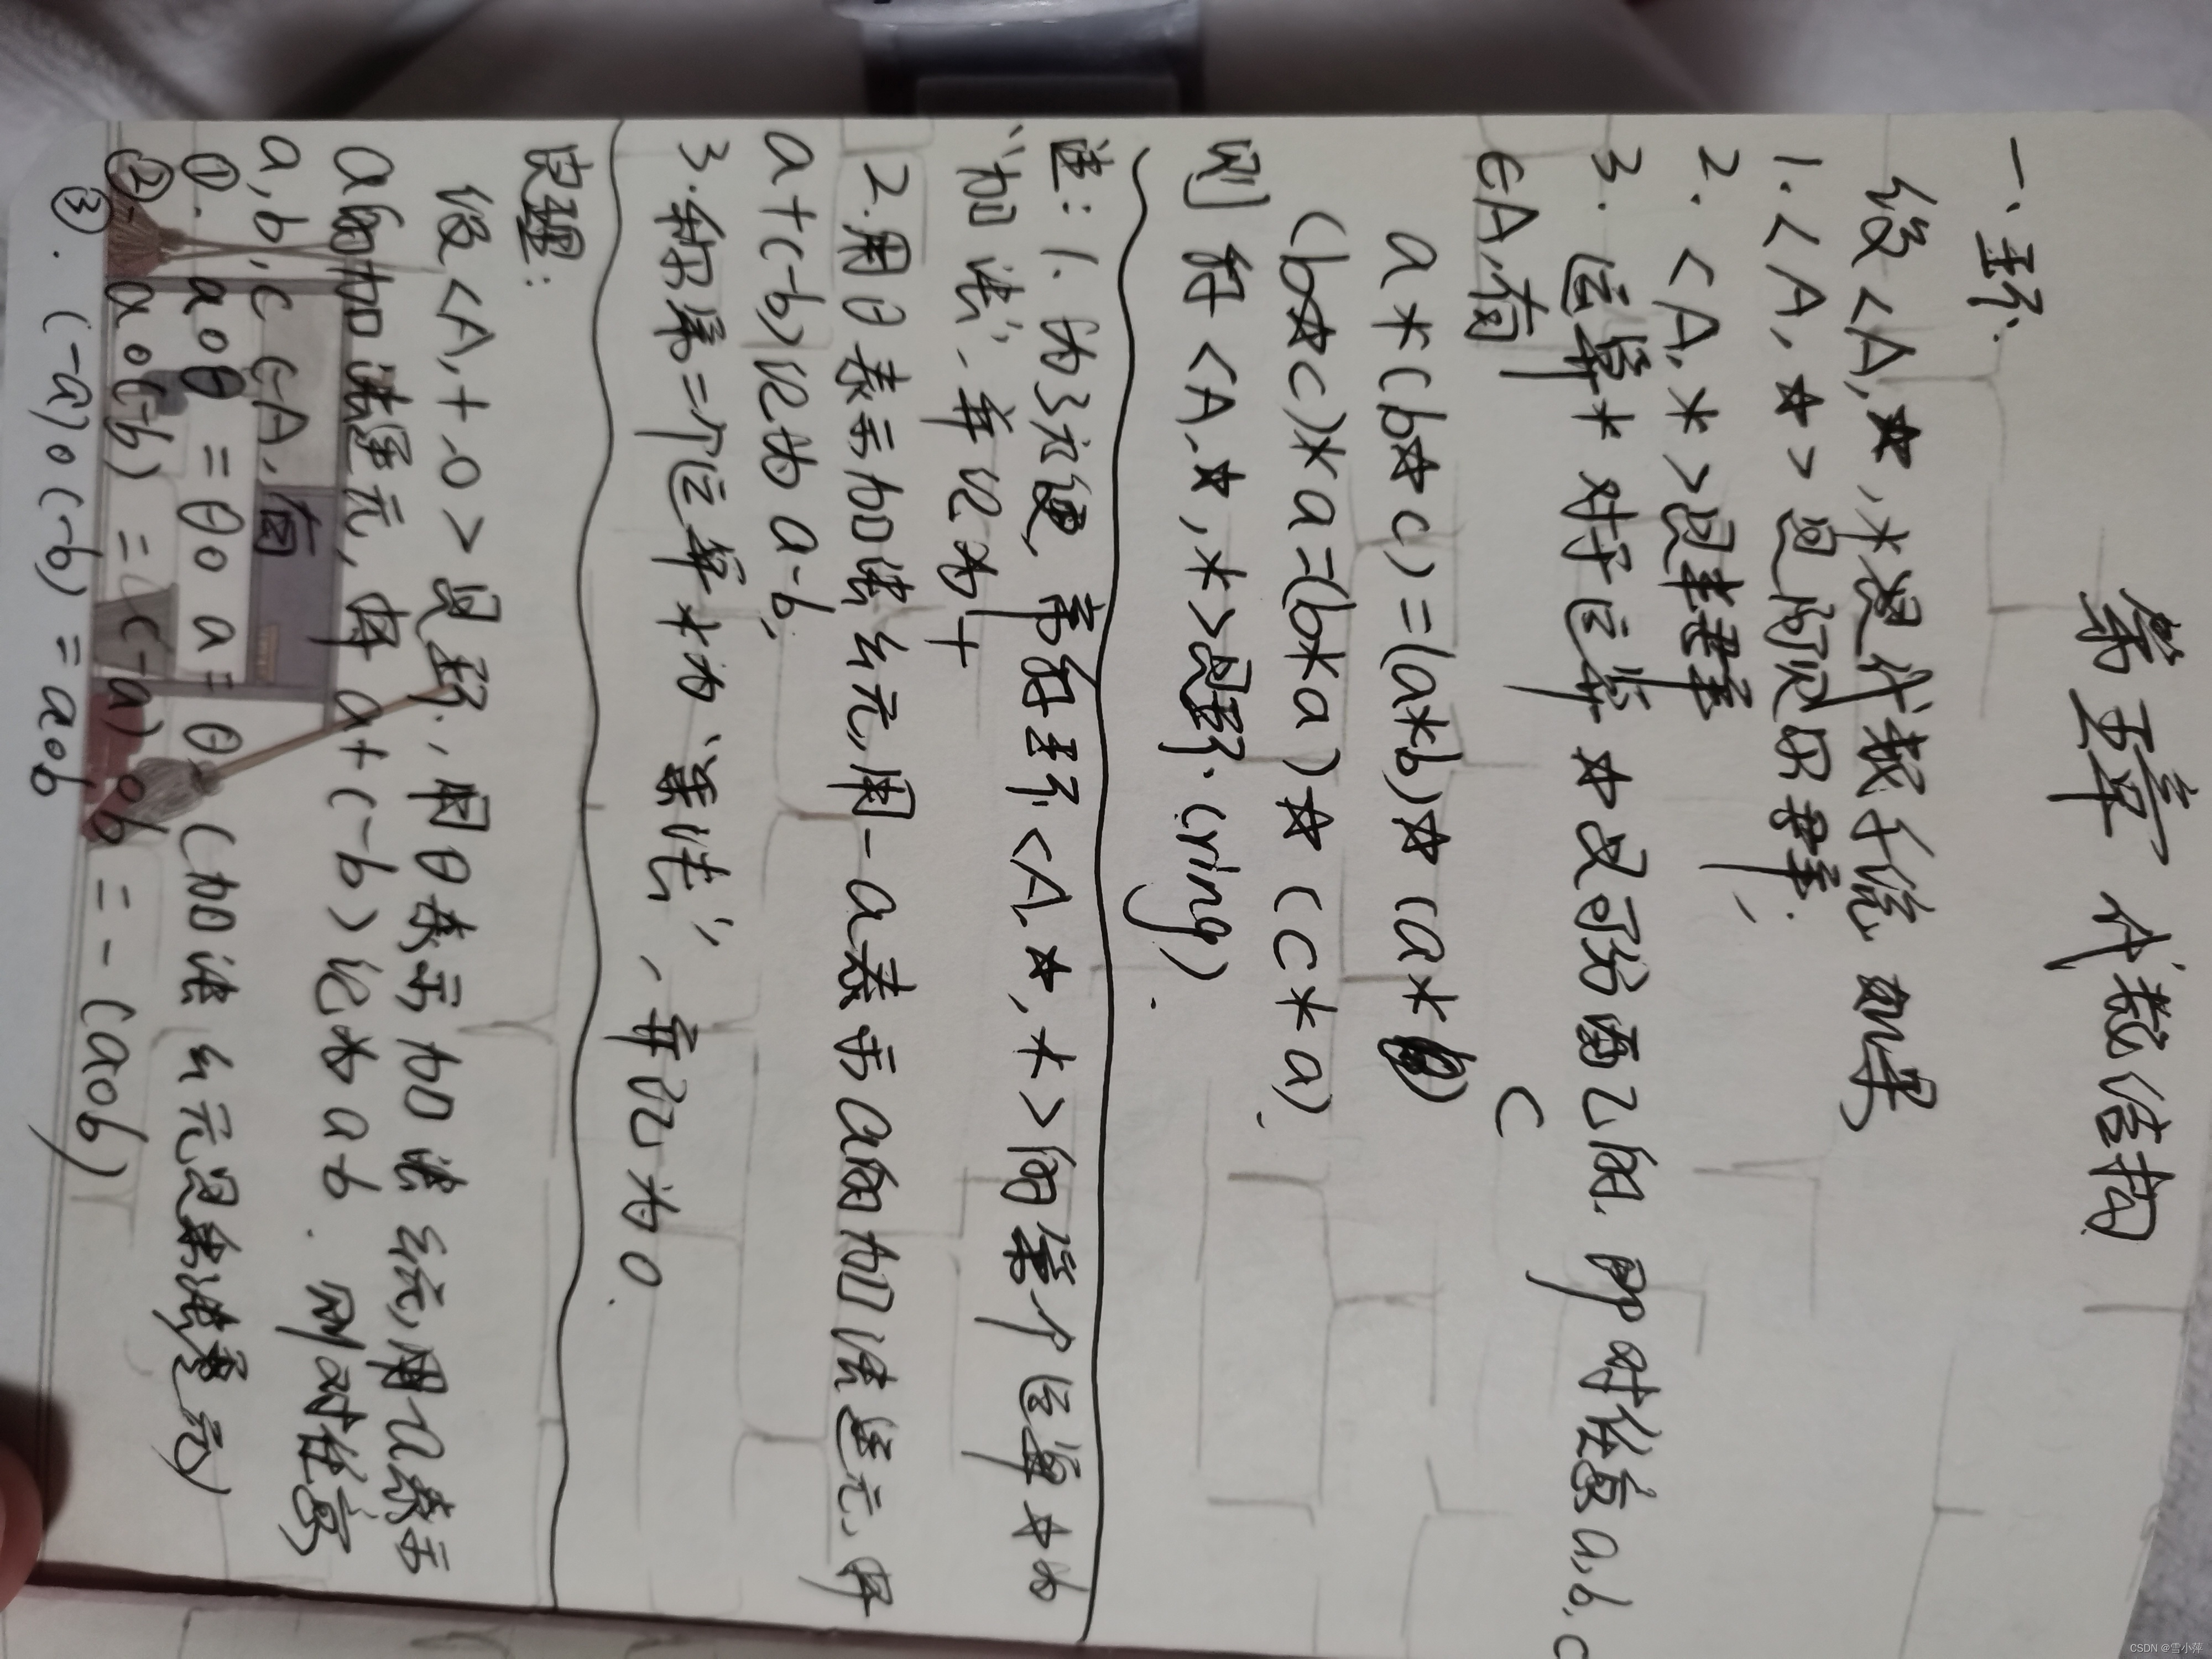 第五章 代数结构
一、环.
设<A,☆,*>是代数系统,如果
1.<A,☆>是阿贝尔群.
2.<A,*>是半群
3.运算*对于运算☆又可分配的.即对任意a,b,c
∈A,有
a*(b☆c)=(a*b)☆(a*c)
(b☆c)*a=(b*a)☆(c*a).
则称<A,☆,*>是环.(ring).
注:1.为了方便,常将环<A,☆,*>的第一个运算☆为
“加法”,并记为+
2.用θ表示加法幺元,用-a表示a的加法逆元,并
a+(-b)记为a-b.
3.称第二个运算*为“乘法”,并记为o.
定理:
设<A,+,o>是环,用θ表示加法幺元,用-a表示
a的加法逆元,并a+(-b)记为a-b.则对任意
a,b,c∈A,有
①.aoθ=θoa=θ (加法幺元是乘法零元)
②.ao(-b)=(-a)ob=-(aob)
③.(-a)o(-b)=aob
CSDN @雪小萍